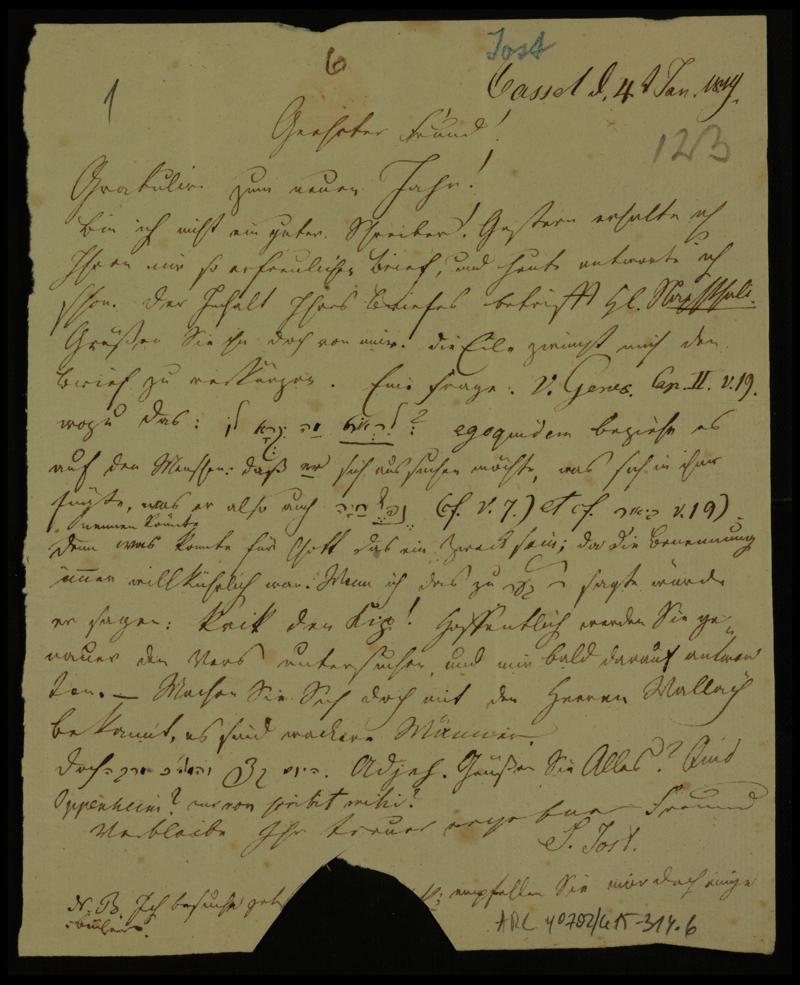 Jost
6
1
Cassel d. 4t Jan. 1819.
123
Geehrter Freund!
Gratulire zum neuen Jahr!
Bin ich nicht ein guter Schreiber! Gestern erhalte ich
Ihren mir so erfreulichen Brief, und heute antworte ich
schon. Der Inhalt Ihres Briefes betrifft Hl.
Grüßen Sie ihn doch von mir. Die Eile zwingt mich den
Brief zu verkürzen. Eine Frage: V. Genes. Cap. II. v. 19.
wozu das: לראות מה יקרא לו? egoquidem beziehe es
auf den Menschen: daß er sich aussuchen möchte, was sich in ihm
fügte, was er also auch נפש חיה (cf. v. 7.) et cf. v. 19)
nennen könnte
Denn was konnte für Gott das ein Zweck sein; da die Benennung
immer willkührlich war. Wenn ich das zu sagte würde
er sagen: den Kip! Hoffentlich werden Sie ge-
nauer den Vers untersuchen, und mir bald darauf antwor-
ten. — Machen Sie Sich doch mit den Herren Wallach
bekannt, es sind wackere Männer.
Doch Adjeh. Grüßen Sie Alles? Quid
Oppenheim?
Verbleibe Ihr treuer ergebener Freund
S. Jost.
N. B. Ich besuche empfehlen Sie mir doch einige
Bücher.
ARC 4o792/415-314.6